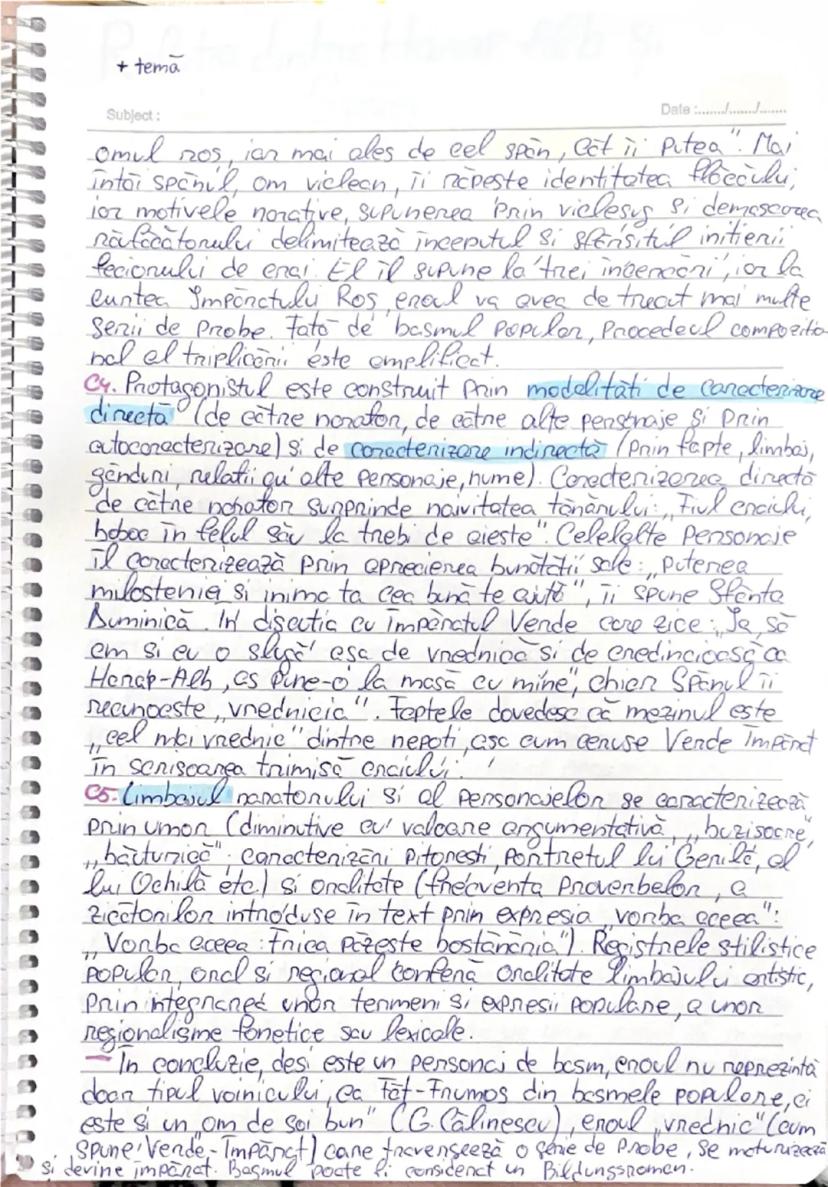 + temă
Subject :
Date :......../......../........
omul roș, iar mai ales de cel spân, cât îi putea". Mai
întâi spânul, om viclean, îi răpește identitatea flăcăului,
iar motivele narative, supunerea prin vicleșug și demascarea
răufăcătorului delimitează începutul și sfârșitul inițierii
feciorului de crai. El îl supune la trei încercări, iar la
curtea Împăratului Roș, eroul va avea de trecut mai multe
serii de probe. Față de basmul popular, procedeul compozițio-
nal al triplicării este amplificat.
C4. Protagonistul este construit prin modalități de caracterizare
directă (de către narator, de către alte personaje și prin
autocaracterizare) și de caracterizare indirectă (prin fapte, limbaj,
gânduri, relații cu alte personaje, nume). Caracterizarea directă
de către narator surprinde naivitatea tânărului: „Fiul craiului,
boboc în felul său la trebi de aieste". Celelalte personaje
îl caracterizează prin aprecierea bunătății sale: „puterea
milosteniei și inima ta cea bună te ajută", îi spune Sfânta
Duminică. În discuția cu împăratul Verde care zice: „Ia, să
am și eu o slugă așa de vrednică și de credincioasă ca
Harap-Alb, aș pune-o la masă cu mine", chiar Spânul îi
recunoaște „vrednicia". Faptele dovedesc că mezinul este
„cel mai vrednic" dintre nepoți, așa cum ceruse Verde Împărat
în scrisoarea trimisă craiului.
C5. Limbajul naratorului și al personajelor se caracterizează
prin umor (diminutive cu valoare argumentativă, „buzișoare",
„băuturică"; caracterizări pitorești, portretul lui Gerilă, al
lui Ochilă etc.) și oralitate (frecvența proverbelor, a
zicătorilor introduse în text prin expresia „vorba aceea":
„Vorba aceea: frica păzește bostănăria"). Registrele stilistice
popular, oral și regional conferă oralitate limbajului artistic,
prin integrarea unor termeni și expresii populare, a unor
regionalisme fonetice sau lexicale.
— În concluzie, deși este un personaj de basm, eroul nu reprezintă
doar tipul voinicului, ca Făt-Frumos din basmele populare, ci
este și un „om de soi bun" (G. Călinescu), eroul „vrednic" (cum
spune Verde-Împărat) care traversează o serie de probe, se maturizează
și devine împărat. Basmul poate fi considerat un Bildungsroman.